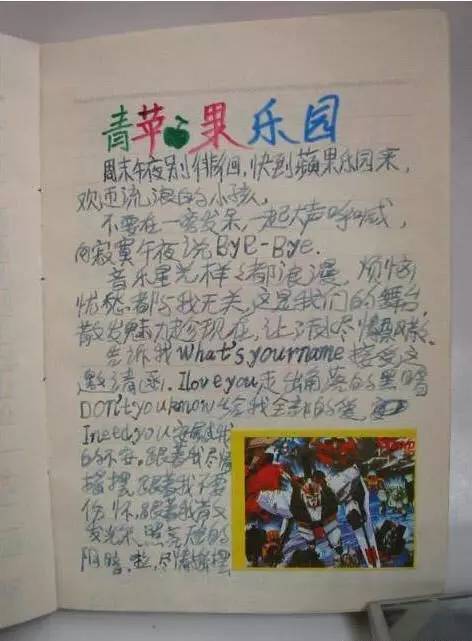 青苹果乐园
周末午夜别徘徊,快到蘋果乐园来,
欢迎流浪的小孩,
不要在一旁发呆,一起大声呼喊,
向寂寞午夜说Bye-Bye.
音乐星光样样都浪漫,烦恼
忧愁都与我无关,这是我们的舞台,
散发魅力趁现在,让
告诉我what's your name接受这
邀请函.I love you走出角落的黑暗
DON't you know给我全部的
I need you
的不安.跟着我尽情
摇摆.跟着我不要
伤怀,跟着我
阴暗.啦,尽情摇摆